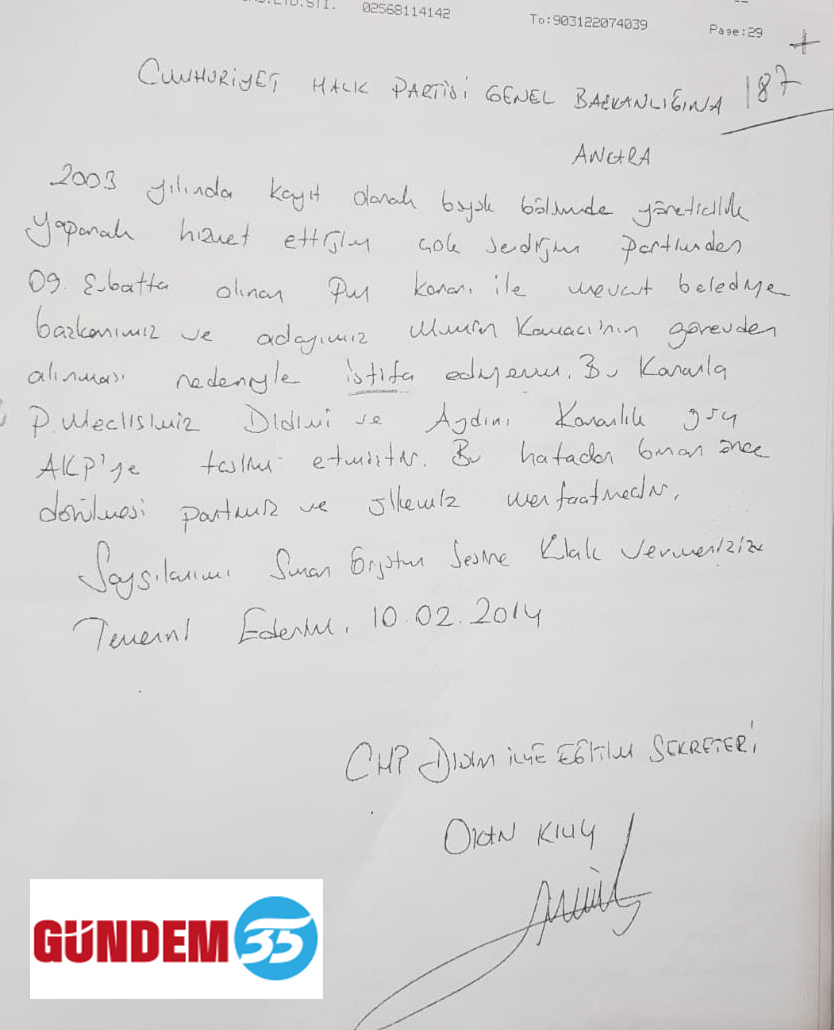 LTD.STI. 02568114142 To:903122074039 Page:29
187
CUMHURİYET HALK PARTİSİ GENEL BAŞKANLIĞINA
ANKARA
2003 yılında kayıt olarak büyük bölümünde yöneticilik
yaparak hizmet ettiğim çok sevdiğim partimden
09. Şubatta alınan kararı ile mevcut belediye
başkanımız ve adayımız Mümin Kamacı'nın görevden
alınması nedeniyle istifa ediyorum. Bu Kararla
P. Meclisimiz Didimi ve Aydını Karanlık
AKP'ye teslim etmiştir. Bu hatadan biran önce
dönülmesi partimiz ve ülkemiz menfaatinedir.
Saygılarımı Sunar Örgütün Sesine Kulak vermenizi
Temenni Ederim. 10.02.2014
CHP DİDİM İLÇE EĞİTİM SEKRETERİ
GÜNDEM 35